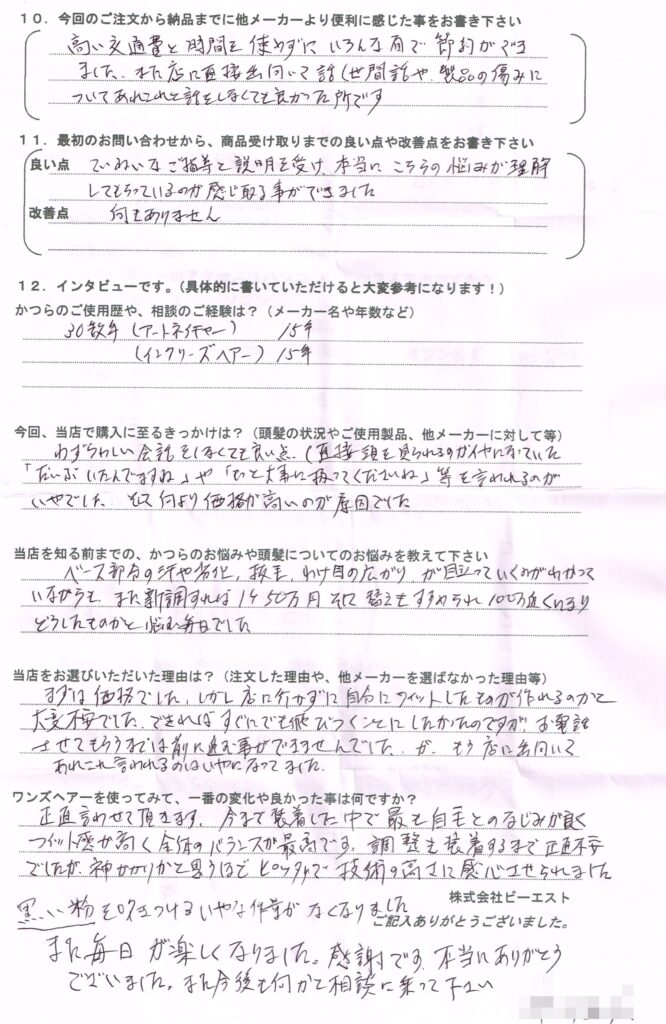 １０．今回のご注文から納品までに他メーカーより便利に感じた事をお書き下さい
高い交通費と時間を使わずに いろんな面で節約ができ
ました、また店に直接出向いて話（世間話や、製品の傷みに
ついてあれこれと話をしなくても良かった所です
１１．最初のお問い合わせから、商品受け取りまでの良い点や改善点をお書き下さい
良い点 ていねいなご指導と説明を受け、本当にこちらの悩みが理解
してもらっているのが感じ取る事ができました
改善点 何もありません
１２．インタビューです。（具体的に書いていただけると大変参考になります！）
かつらのご使用歴や、相談のご経験は？（メーカー名や年数など）
30数年（アートネイチャー） 15年
（インクリーズヘアー）15年
今回、当店で購入に至るきっかけは？（頭髪の状況やご使用製品、他メーカーに対して等）
わずらわしい会話をしなくても良い点（直接頭を見られるのがイヤになっていた
「だいぶいたんでますね」や「もっと大事に扱ってくださいね」等を言われるのが
いやでした、そして何より価格が高いのが原因でした
当店を知る前までの、かつらのお悩みや頭髪についてのお悩みを教えて下さい
ベース部分の汗や劣化、抜毛、わけ目の広がり、が目立っていくのがわかって
いながらも、また新調すれば1ヶ50万円 そして替えもすすめられ100万近くになり
どうしたものかと悩む毎日でした
当店をお選びいただいた理由は？（注文した理由や、他メーカーを選ばなかった理由等）
まずは価格でした、しかし店に行かずに自分にフィットしたものが作れるのかと
大変不安でした、できればすぐにでも飛びつくことにしたかったのですが、お電話
させてもらうまでは前に進む事ができませんでした、が、もう店に出向いて
あれこれ言われるのはいやになってました、
ワンズヘアーを使ってみて、一番の変化や良かった事は何ですか？
正直言わせて頂きます、今まで装着した中で最も自毛とのなじみが良く
フィット感が高く全体のバランスが最高です、調整も装着するまで正直不安
でしたが、神がかりかと思うほどピッタリで技術の高さに感心させられました
株式会社ビーエスト
黒い粉をふきつけるいやな作業がなくなりました
ご記入ありがとうございました。
また毎日が楽しくなりました。感謝です、本当にありがとう
ございました。また今後も何かと相談に乗って下さい